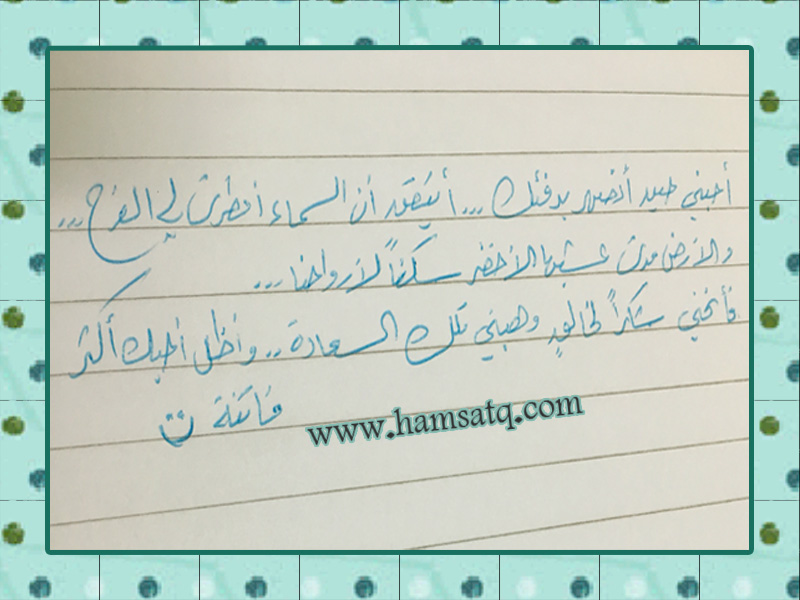 أحبني حد أنصهر بدفئك ... أتيقن أن السماء أمطرت لي الفرح ...
والأرض مدت عشبها الأخضر سكناً لأرواحنا ...
فأنحني شكراً لخالقٍ وهبني تلك السعادة .. وأظل أحبك أكثر
فاتنة ن
www.hamsatq.com